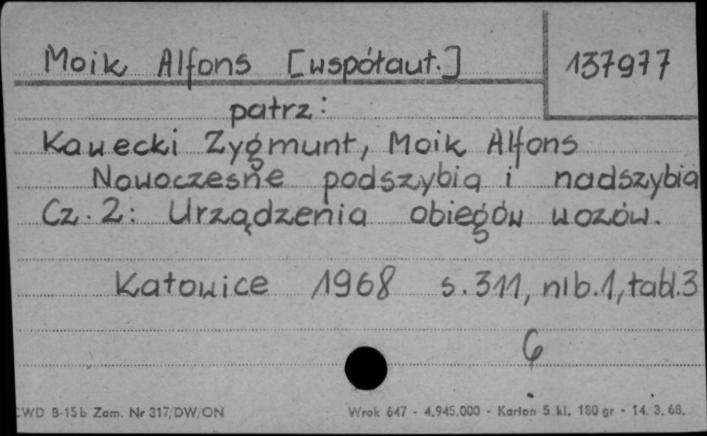 Moik Alfons [współaut.] 137977
patrz:
Kawecki Zygmunt, Moik Alfons
Nowoczesne podszybia i nadszybia
Cz. 2: Urządzenia obiegów wozów.
Katowice 1968 s.311, nlb.1, tabl.3
6
CWD B-15b Zam. Nr 317/DW/ON Wrok 647 - 4.945.000 - Karton 5 kl. 180 gr - 14. 3. 68.